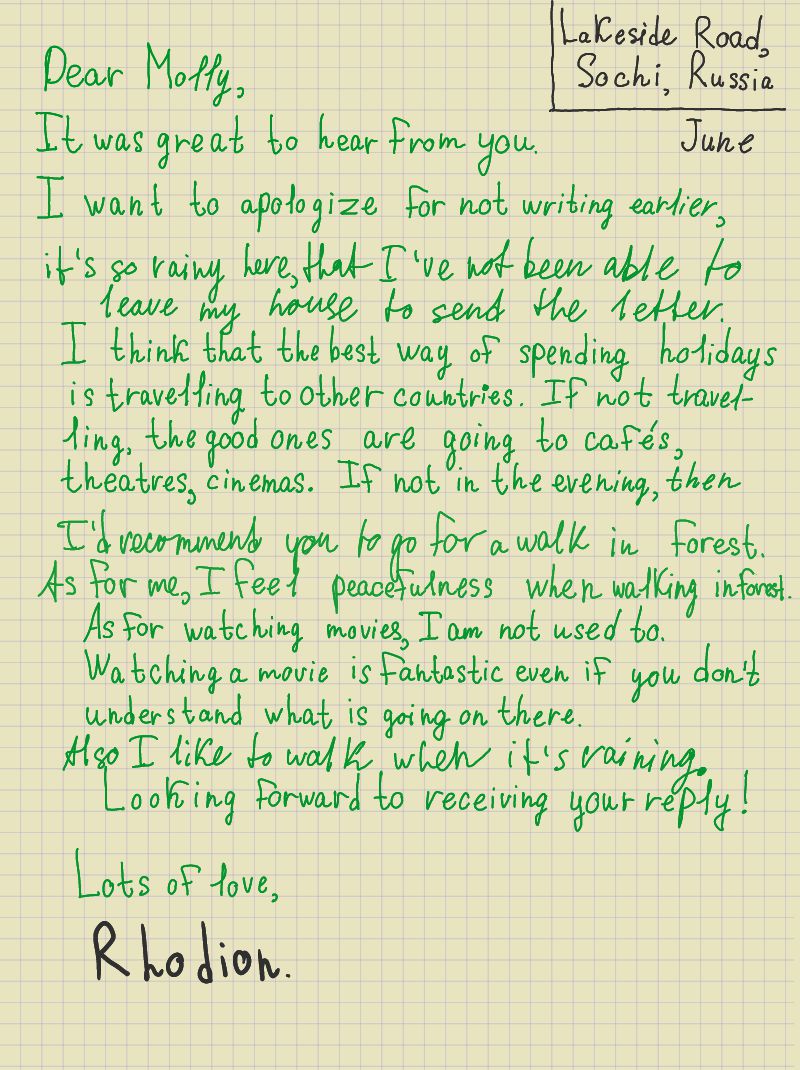 Lakeside Road,
Sochi, Russia
June
Dear Molly,
It was great to hear from you.
I want to apologize for not writing earlier,
it's so rainy here, that I've not been able to
leave my house to send the letter.
I think that the best way of spending holidays
is travelling to other countries. If not travel-
ling, the good ones are going to cafés,
theatres, cinemas. If not in the evening, then
I'd recommend you to go for a walk in forest.
As for me, I feel peacefulness when walking in forest.
As for watching movies, I am not used to.
Watching a movie is fantastic even if you don't
understand what is going on there.
Also I like to walk when it's raining.
Looking forward to receiving your reply!
Lots of love,
Rhodion.